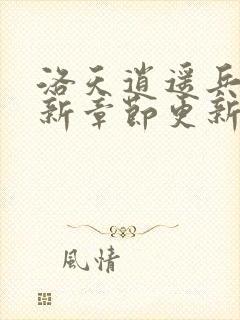 洛天逍遥兵
新章節更新
風情